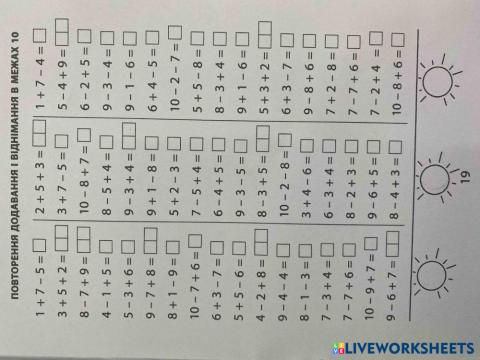 ПОВТОРЕННЯ ДОДАВАННЯ І ВІДНІМАННЯ В МЕЖАХ 10
1 + 7 – 5 =
3 + 5 + 2 =
8 – 7 + 9 =
4 – 1 + 5 =
5 – 3 + 6 =
9 – 7 + 8 =
8 + 1 – 9 =
10 – 7 + 6 =
6 + 3 – 7 =
5 + 5 – 6 =
4 – 2 + 8 =
9 – 4 – 4 =
8 – 1 – 3 =
7 – 3 + 4 =
7 – 7 + 6 =
10 – 9 + 7 =
9 – 6 + 7 =
2 + 5 + 3 =
3 + 7 – 5 =
10 – 8 + 7 =
8 – 5 + 4 =
9 – 3 + 4 =
9 + 1 – 8 =
5 + 2 – 3 =
7 – 5 + 4 =
6 – 4 + 5 =
9 – 3 – 5 =
8 – 3 + 5 =
10 – 2 – 8 =
3 + 4 – 6 =
6 – 3 + 4 =
8 – 2 + 3 =
9 – 6 + 5 =
8 – 4 + 3 =
1 + 7 – 4 =
5 – 4 + 9 =
6 – 2 + 5 =
9 – 3 – 4 =
9 – 1 – 6 =
6 + 4 – 5 =
10 – 2 – 7 =
5 + 5 – 8 =
8 – 3 + 4 =
9 + 1 – 6 =
5 + 3 + 2 =
6 + 3 – 7 =
9 – 8 + 6 =
7 + 2 – 8 =
7 – 7 + 6 =
7 – 2 + 4 =
10 – 8 + 6 =
19
LIVEWORKSHEETS